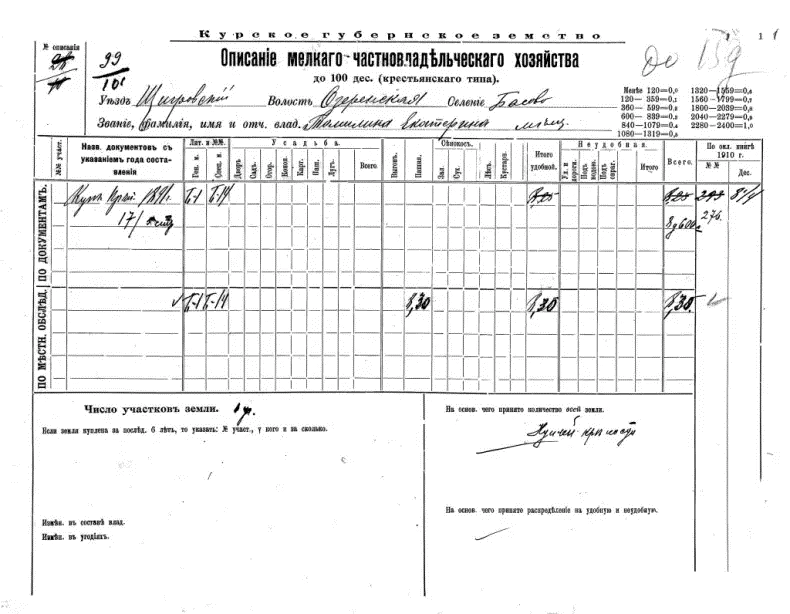 Курское губернское земство
№ описанія
99
Описаніе мелкаго частновладѣльческаго хозяйства
до 15д
до 100 дес. (крестьянскаго типа).
Уѣздъ Щигровскій Волость Озеренская Селеніе Басово
Званіе, фамилія, имя и отч. влад. Томилина Екатерина
Менѣе 120=0,0 1320—1559=0,6
120— 359=0,1 1560—1799=0,7
360— 599=0,2 1800—2039=0,8
600— 839=0,3 2040—2279=0,9
840—1079=0,4 2280—2400=1,0
1080—1319=0,5
№№ участ.
Назв. документовъ съ указаніемъ года составленія
Лит. и №№.
Ген. м.
Спец. м.
Усадьба.
Дворъ
Садъ.
Огор.
Коноп.
Карт.
Капн.
Лугъ.
Всего
Выгонъ.
Пашня.
Сѣнокосъ.
Зал.
Сух.
Лѣсъ.
Кустарн.
Итого удобной.
Неудобная.
Ул. и дороги.
Подъ водою.
Подъ овраг.
Итого
Всего.
По окл. книгѣ 1910 г.
№№
Дес.
ПО ДОКУМЕНТАМЪ.
Б-1 Б-14 8,25 8,25 293 8¼
276
8д 600
ПО МѢСТН. ОБСЛѢД.
Б-1 Б-14 8,30 8,30 8,30
Число участковъ земли. 1 у.
Если земля куплена за послѣд. 6 лѣтъ, то указать: № участ., у кого и за сколько.
На основ. чего принято количество всей земли.
Купчей крѣпости
На основ. чего принято распредѣленіе на удобную и неудобную.
Измѣн. въ составѣ влад.
Измѣн. въ угодіяхъ.